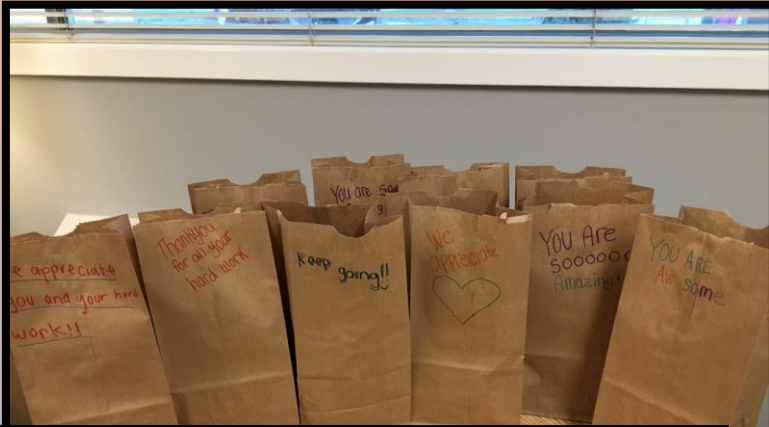 e appreciate
you and your hard
work!!
Thankyou
for all your
hard work
Keep going!!
We
appreciate
YOU Are
soooooo
Amazing!
YOU ARE
Awesome
You are